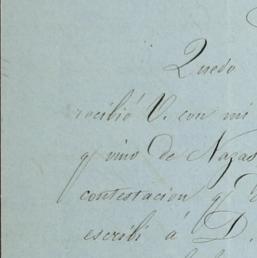 Quedo
recibió V. con mi
q vino de Nazas
contestacion q
escribí á D.